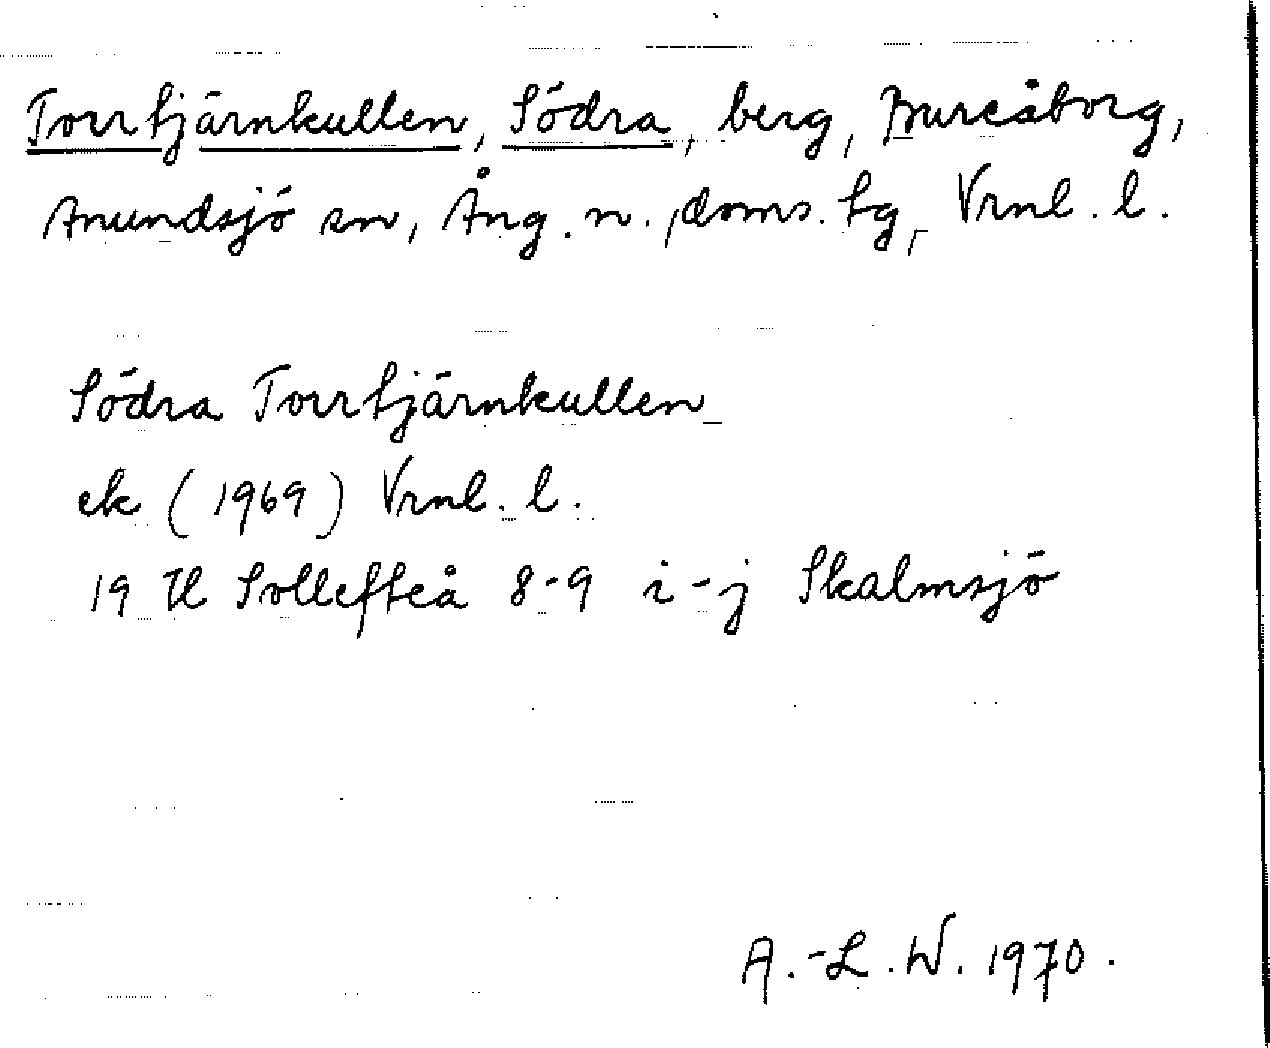 Torrtjärnkullen, Södra, berg, Bureåborg,
Anundsjö sn, Ång. n. doms. tg, Vrnl. l.
Södra Torrtjärnkullen
ek (1969) Vrnl. l.
19 H Sollefteå 8-9 i-j Skalmsjö
A.-L.W. 1970.